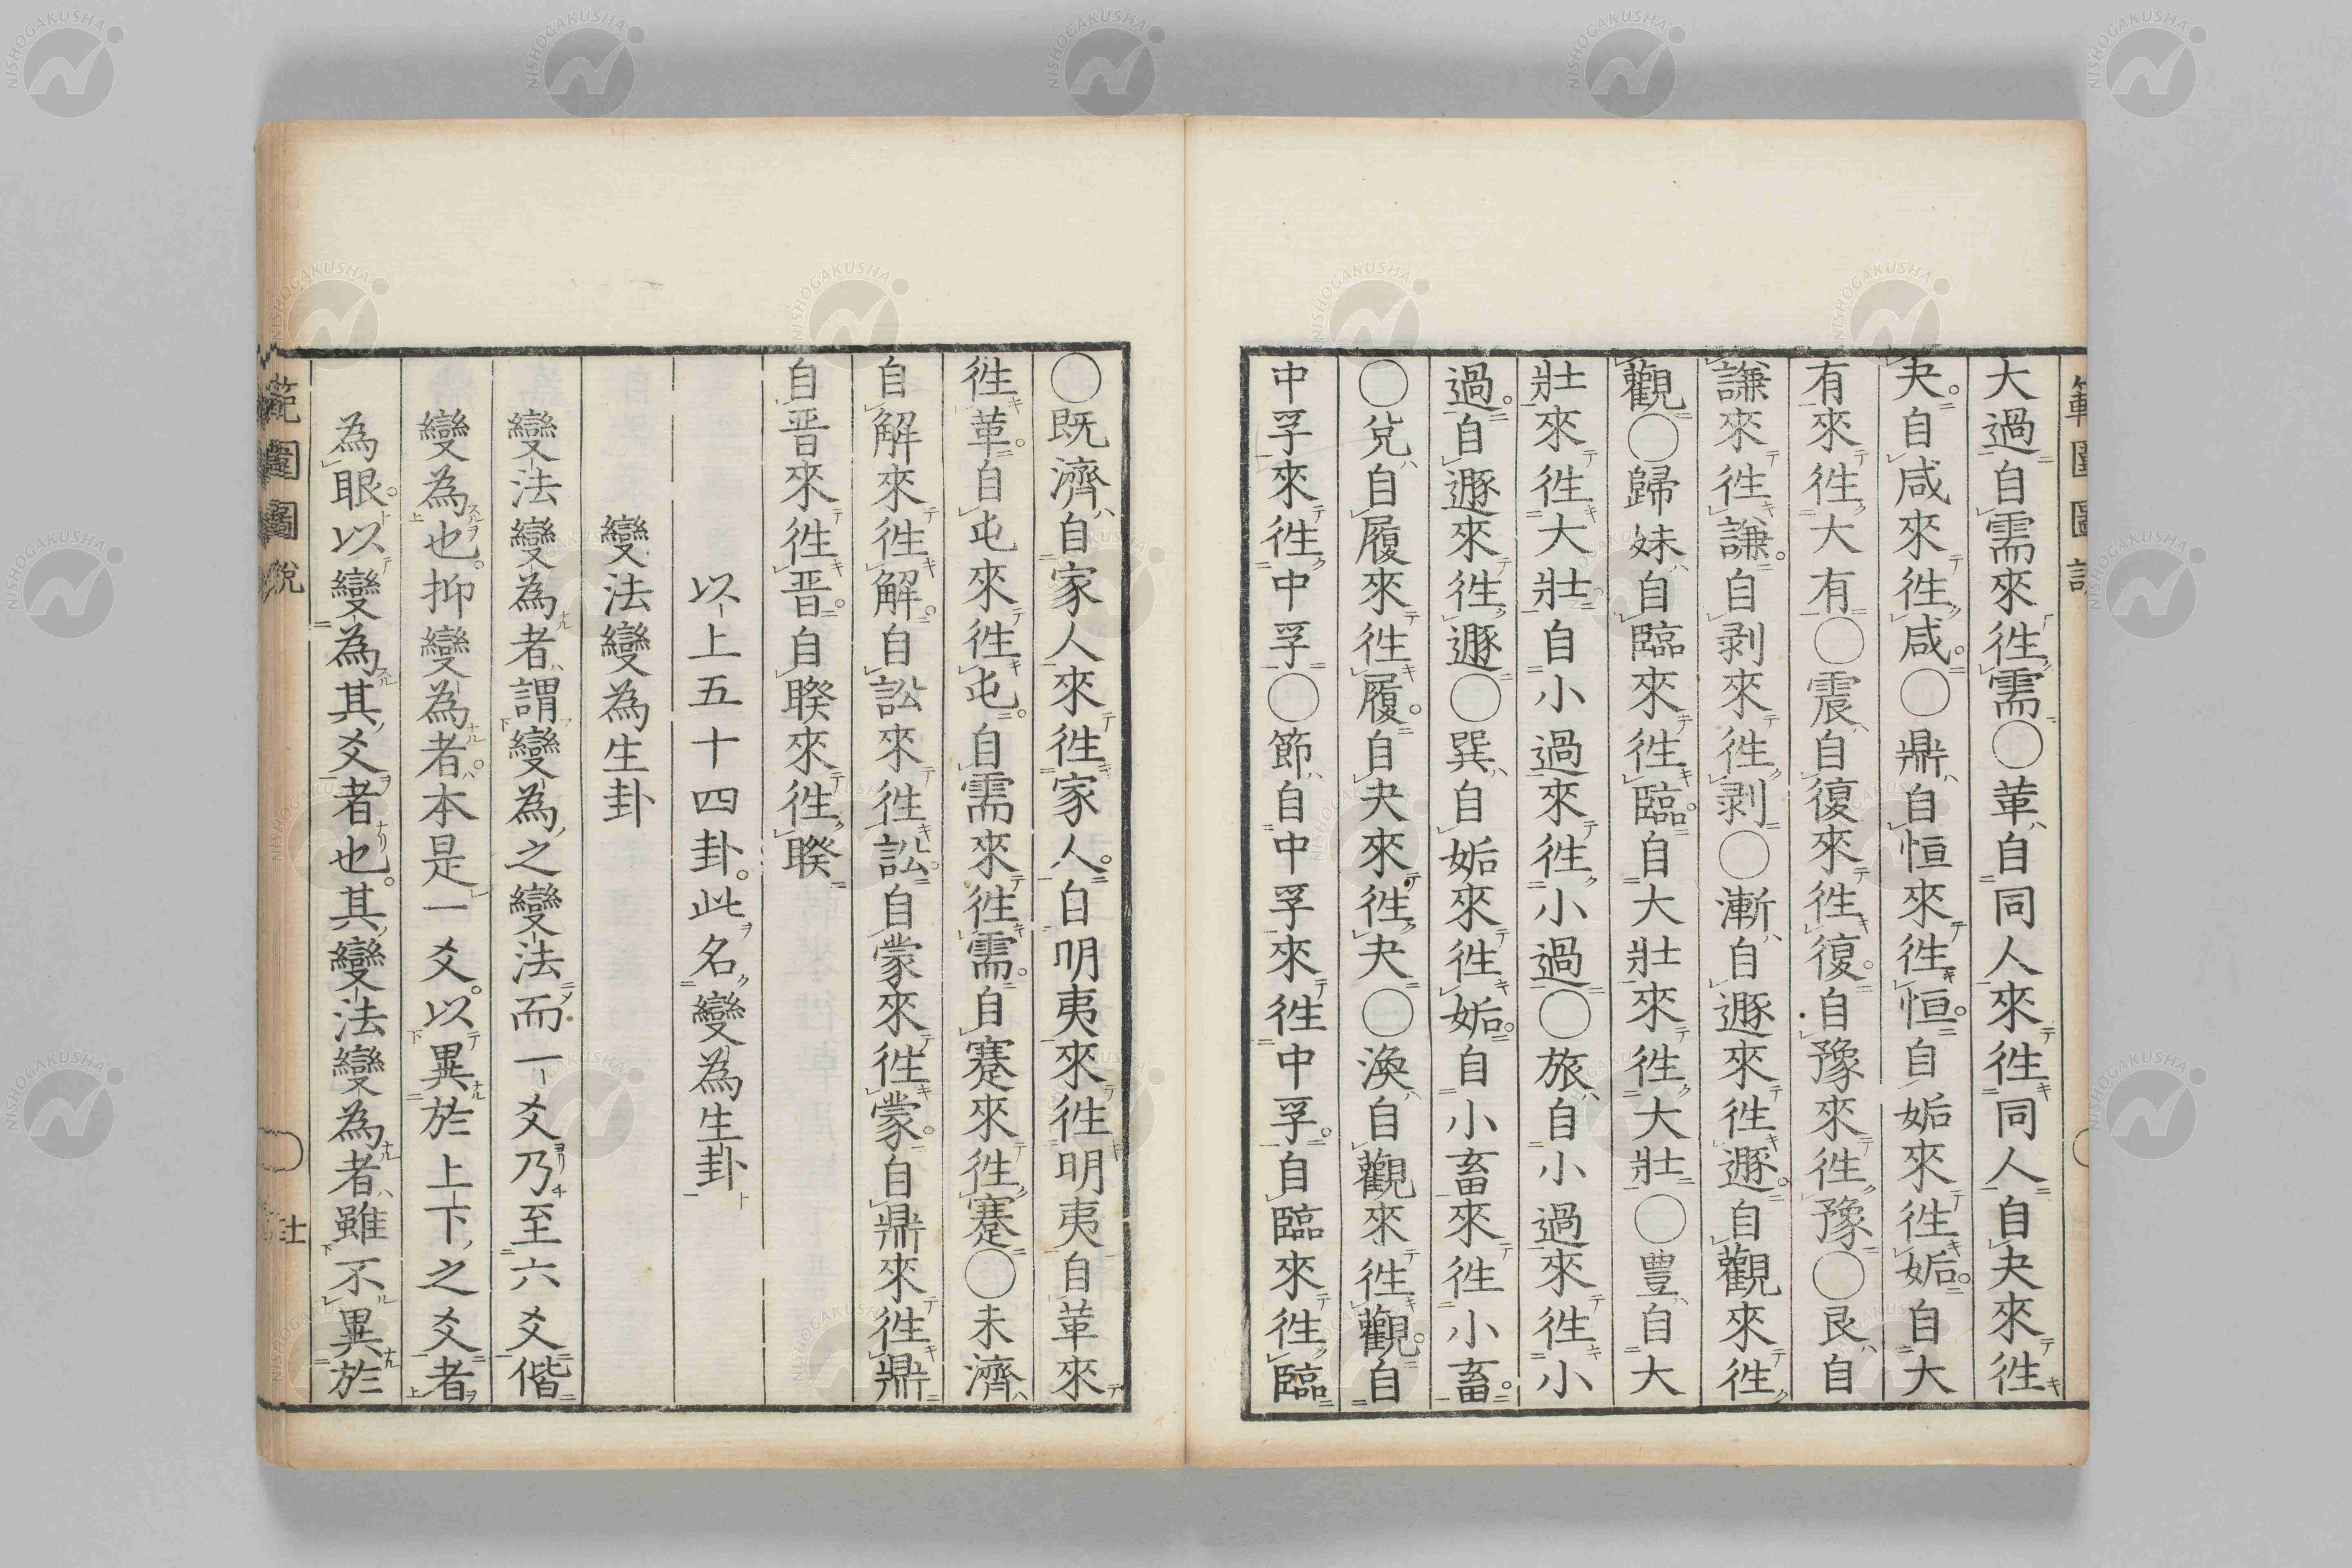 大過自需來徃需○革自同人來徃同人自夬來徃
夬自咸來徃咸○鼎自恒來徃恒自姤來徃姤自大
有來徃大有○震自復來徃復自豫來徃豫○艮自
謙來徃謙自剥來徃剥○漸自遯來徃遯自觀來徃
觀○歸妹自臨來徃臨自大壯來徃大壯○豊自大
壯來徃大壯自小過來徃小過○旅自小過來徃小
過自遯來徃遯○巽自姤來徃姤自小畜來徃小畜
○兌自履來徃履自夬來徃夬○渙自觀來徃觀自
中孚來徃中孚○節自中孚來徃中孚自臨來徃臨
○既濟自家人來徃家人自明夷來徃明夷自革來
徃革自屯來徃屯自需來徃需自蹇來徃蹇○未濟
自解來徃解自訟來徃訟自蒙來徃蒙自鼎來徃鼎
自晋來徃晋自睽來徃睽
以上五十四卦此名變為生卦
變法變為生卦
變法變為者謂變為之變法而一爻乃至六爻偕
變為也抑變為者本是一爻以異於上下之爻者
為眼以變為其爻者也其變法變為者雖不異於
範圍圖說
NISHOGAKUSHA